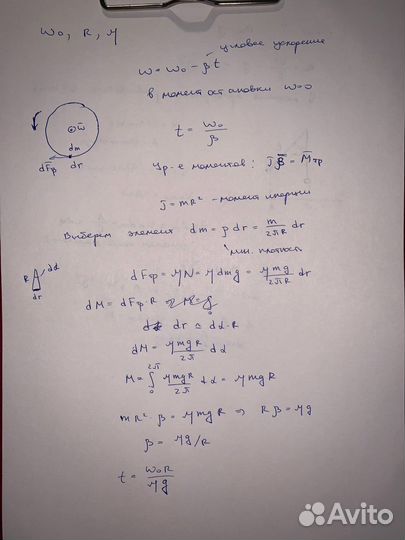 ω₀, R, η
угловое ускорение
ω = ω₀ − βt
в момент остановки ω=0
ω̄
t = ω₀/β
dm
dF̄тр dr
Ур-е моментов: Jβ̄ = M̄тр
J = mR² - момент инерции
Выберем элемент dm = ρ dr = m/2πR dr
лин. плотность
R dα
dr
dFтр = ηN = η dm g = ηmg/2πR dr
dM = dFтр · R
dr ≃ dα·R
dM = ηmgR/2π dα
M = ∫₀^2π ηmgR/2π dα = ηmgR
mR² β = ηmgR ⇒ Rβ = ηg
β = ηg/R
t = ω₀R/ηg
Avito